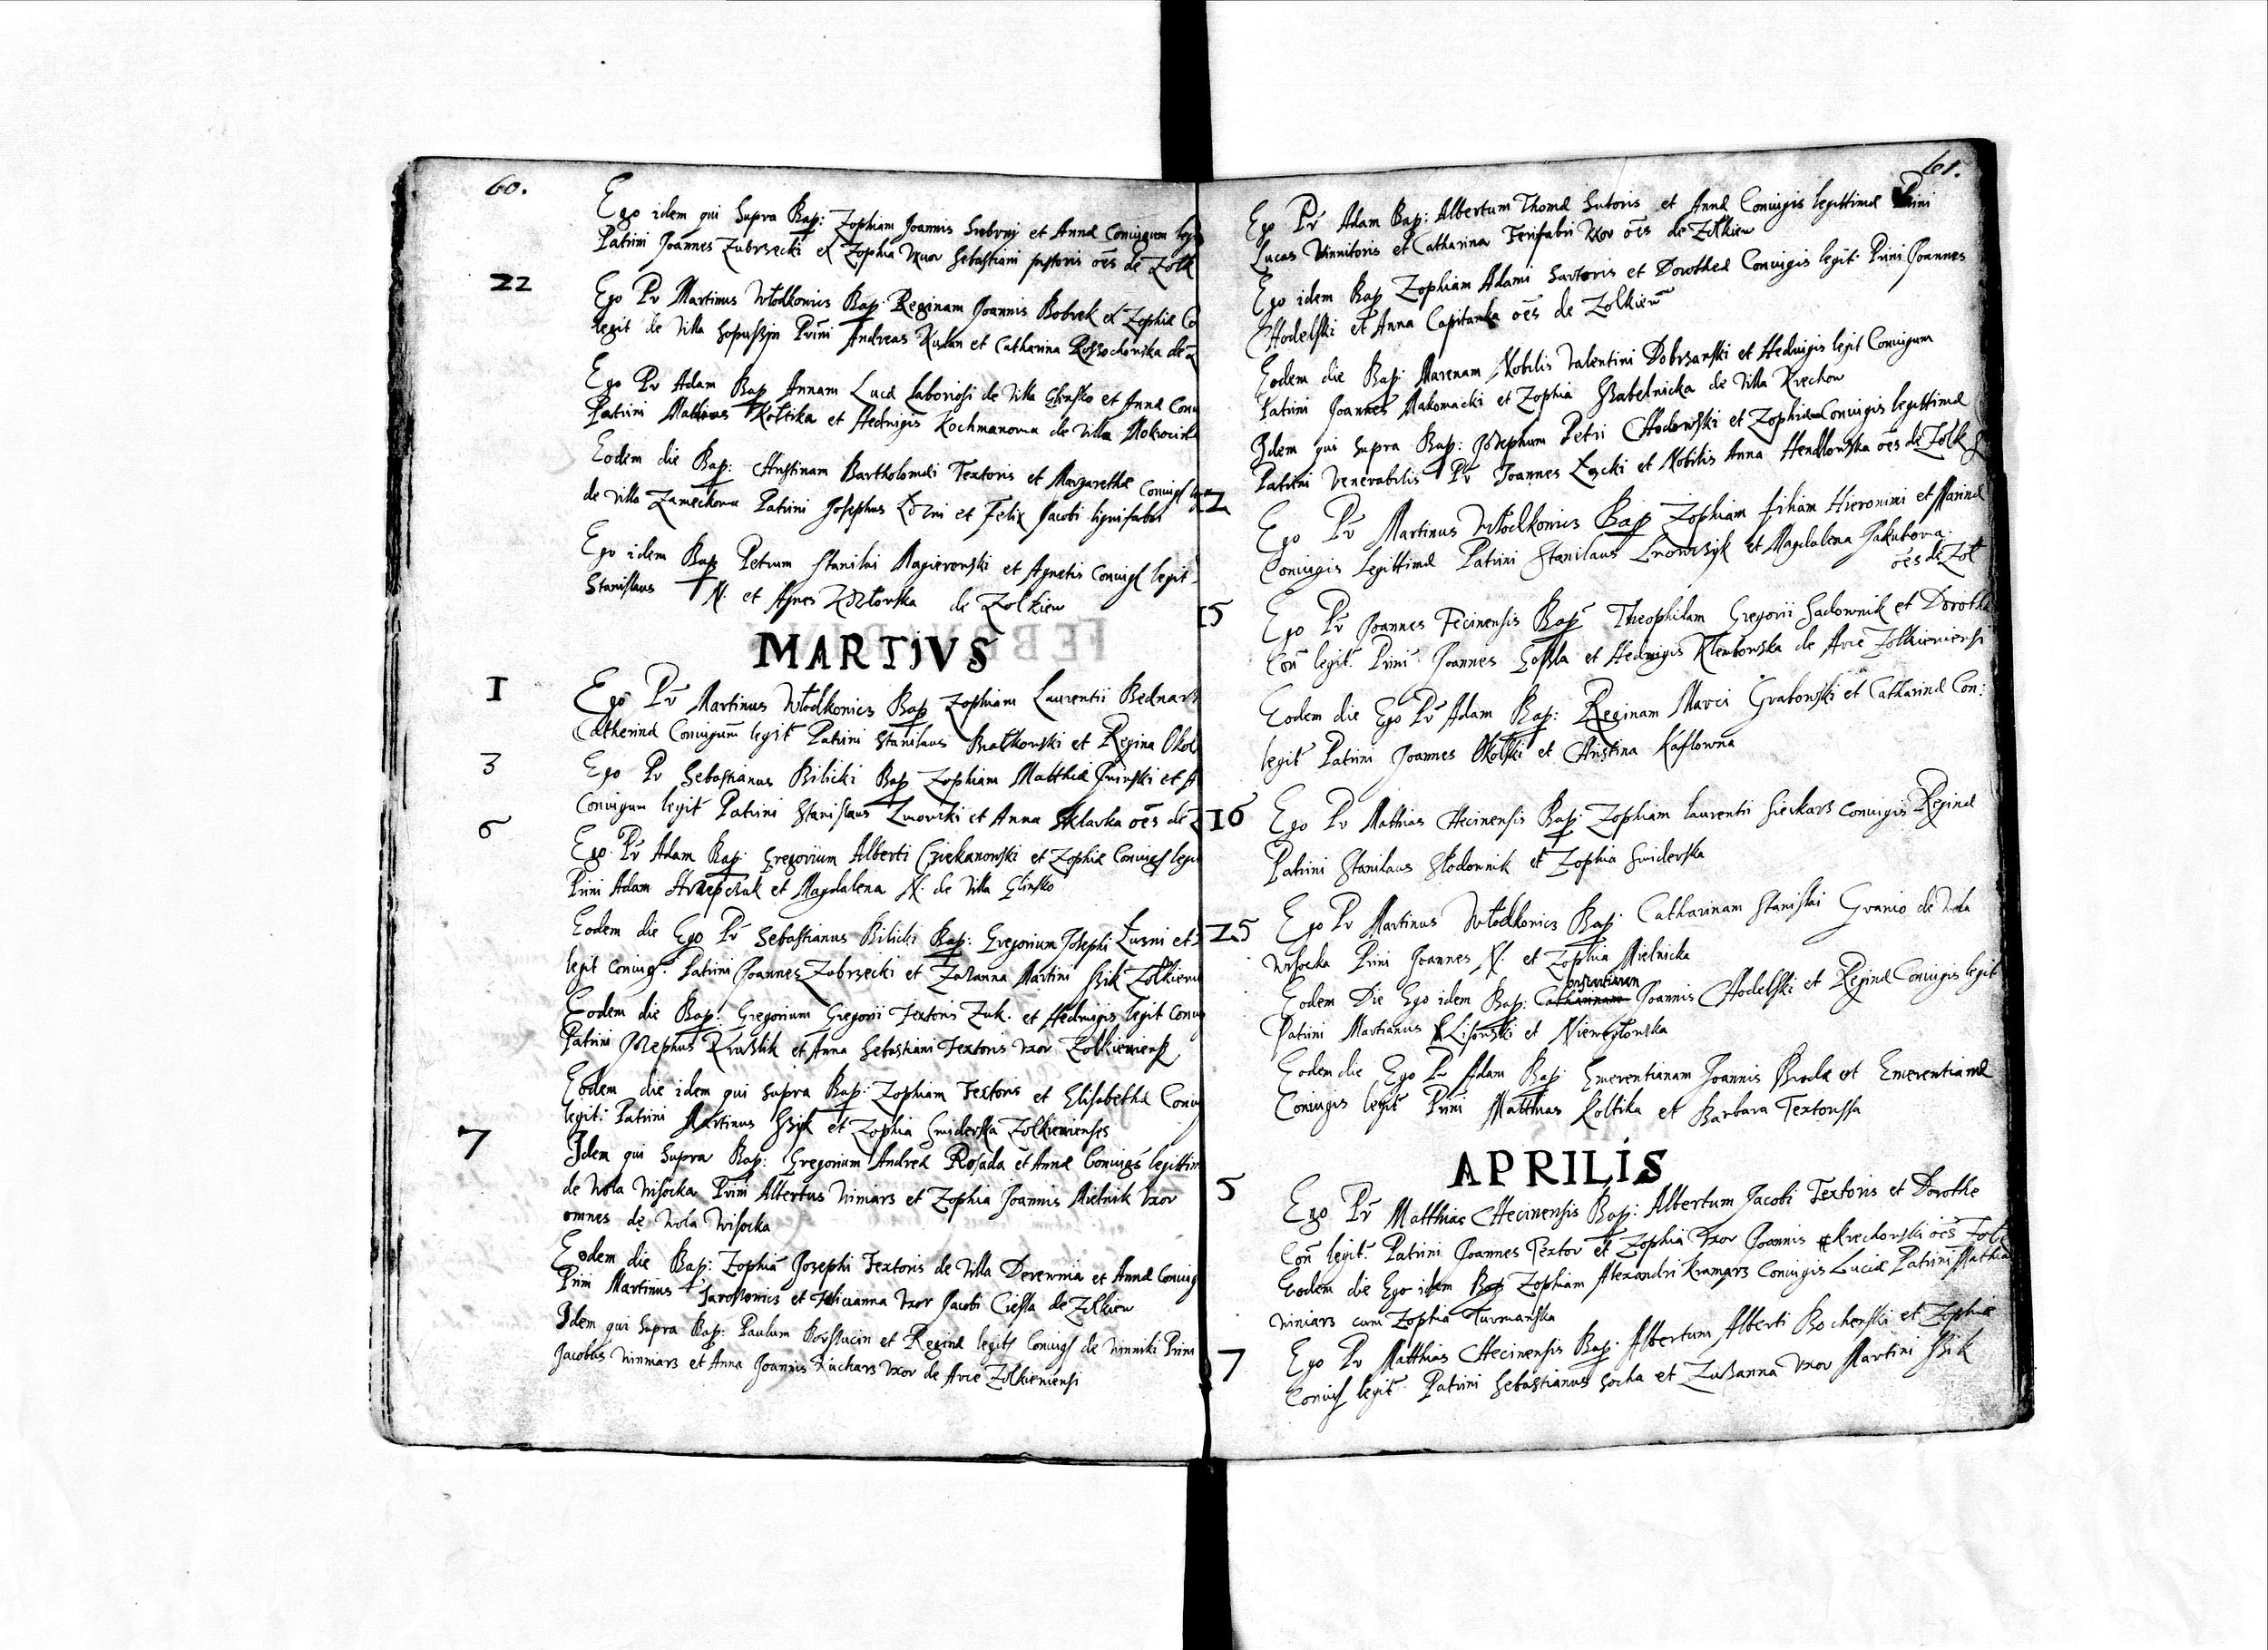 60.
Ego idem qui supra Bap: Zophiam Joannis Srebrny et Annæ Coniugum legi
Patrini Joannes Zubrzecki et Zophia Vxor Sebastiani sutoris oēs de Zolk
22
Ego Pr Martinus Włodkonics Bap: Reginam Joannis Bobrek et Zophiæ Co
legit de Villa Prini Andreas Kulan et Catharina de
Ego Pr Adam Bap Annam Lucæ Laboriosi de Villa Glinsko et Annæ Coniu
Patrini Mathias Koltika et Hedwigis Kochmanowa de Villa
Eodem die Bap: Christinam Bartholomæi Textoris et Margarethæ Coniug
de Villa Zameckowa Patrini Josephus et Felix Jacobi lignifabri
Ego idem Bap Petrum Stanislai Magierowski et Agnetis Coniug legit
Stanislaus N. et Agnes Kozłowska de Zolkiew
MARTIVS
1
Ego Pr Martinus Włodkonics Bap Zophiam Laurentii Bednarz
Catherinæ Coniugum legit Patrini Stanilaus Białkowski et Regina
3
Ego Pr Sebastianus Bilicki Bap Zophiam Matthiæ et
Coniugum legit Patrini Stanislaus Lwowski et Anna Sklarka oēs de
6
Ego Pr Adam Bap: Gregorium Alberti Cziekanowski et Zophiæ Coniug legit
Prini Adam et Magdalena N. de Villa Glinsko
Eodem die Ego Pr Sebastianus Bilicki Bap: Gregorium Josephi Łuzni et
legit coniug: Patrini Joannes Zobrzecki et Zuzanna Martini Bik Zolkiew
Eodem die Bap: Gregorium Gregorii Textoris Zuk. et Hedwigis legit Coniu
Patrini Josephus Kraszlik et Anna Sebastiani Textoris Vxor Zolkiewiens
Eodem die idem qui supra Bap: Zophiam Textoris et Elisabethæ Coniu
legit: Patrini Martinus Bik et Zophia Zolkiewienses
7
Idem qui supra Bap: Gregorium Andreæ Rosada et Annæ Coniugs legittim
de Wola Wisocka Prini Albertus Winiarz et Zophia Joannis Mielnik Vxor
omnes de Wola Wisocka
Eodem die Bap: Zophiā Josephi Textoris de Villa Derewnia et Annæ Coniug
Prini Martinus Jaroszowics et Felicianna Vxor Jacobi Ciesla de Zolkiew
Idem qui supra Bap: Paulum et Reginæ legit Coniug de Winniki Prini
Jacobus Winniarz et Anna Joannis Kucharz Vxor de Arce Zolkieuiensi
61.
Ego Pr Adam Bap: Albertum Thomæ Sutoris et Annæ Coniugis legittimæ Prini
Lucas Vinnitoris et Catharina Ferifabri Vxor oēs de Zolkiew
Ego idem Bap Zophiam Adami Sartoris et Dorotheæ Coniugis legit: Prini Joannes
Chodelski et Anna Capitanka oēs de Zolkiew
Eodem die Bap: Marenam Nobilis Valentini Dobrzanski et Hedwigis legit Coniugum
Patrini Joannes Makomacki et Zophia Szabelnicka de Villa Krechow
Idem qui supra Bap: Josephum Petri Chodowski et Zophiæ Coniugis legittimæ
Patrini Venerabilis Pr Joannes et Nobilis Anna Hendlowska oēs de Zolk
2
Ego Pr Martinus Włodkonics Bap Zophiam filiam Hieronimi et Marinæ
Coniugis Legittimæ Patrini Stanilaus Lwowczyk et Magdalena Jakubowa
oēs de Zol
15
Ego Pr Joannes Tecinensis Bap Theophilam Gregorii Sadownik et Dorothe
Con legit: Prini Joannes et Hedwigis Klembowska de Arce Zolkieuiensi
Eodem die Ego Pr Adam Bap: Reginam Marci Grabowski et Catharinæ Con:
legit Patrini Joannes Okolski et Christina Kaflowna
16
Ego Pr Mathias Checinensis Bap: Zophiam Laurentii Siekarz Coniugis Reginæ
Patrini Stanilaus Słodownik et Zophia Swiderska
25
Ego Pr Martinus Włodkonics Bap: Catharinam Stanislai Granio de Wola
Wisocka Prini Joannes N. et Zophia Mielnicka
Eodem Die Ego idem Bap: Catharinam Joannis Chodelski et Reginæ Coniugis legit
Patrini Martianus Lisowski et Niewęgłowska
Eodem die Ego Pr Adam Bap: Emerentianam Joannis Broda et Emerentianæ
Coniugis legit Prini Matthias Koltika et Barbara Textorissa
APRILIS
5
Ego Pr Matthias Checinensis Bap: Albertum Jacobi Textoris et Dorothe
Con legit: Patrini Joannes Textor et Zophia Vxor Joannis Krechowski oēs Zolk
Eodem die Ego idem Bap Zophiam Alexandri Kramarz Coniugis Luciæ Patrini Mathia
Winiarz cum Zophia Furmanska
7
Ego Pr Matthias Checinensis Bap: Albertum Alberti Bochenski et Zophiæ
Coniug legit: Patrini Sebastianus Socha et Zuzanna Vxor Martini Bik